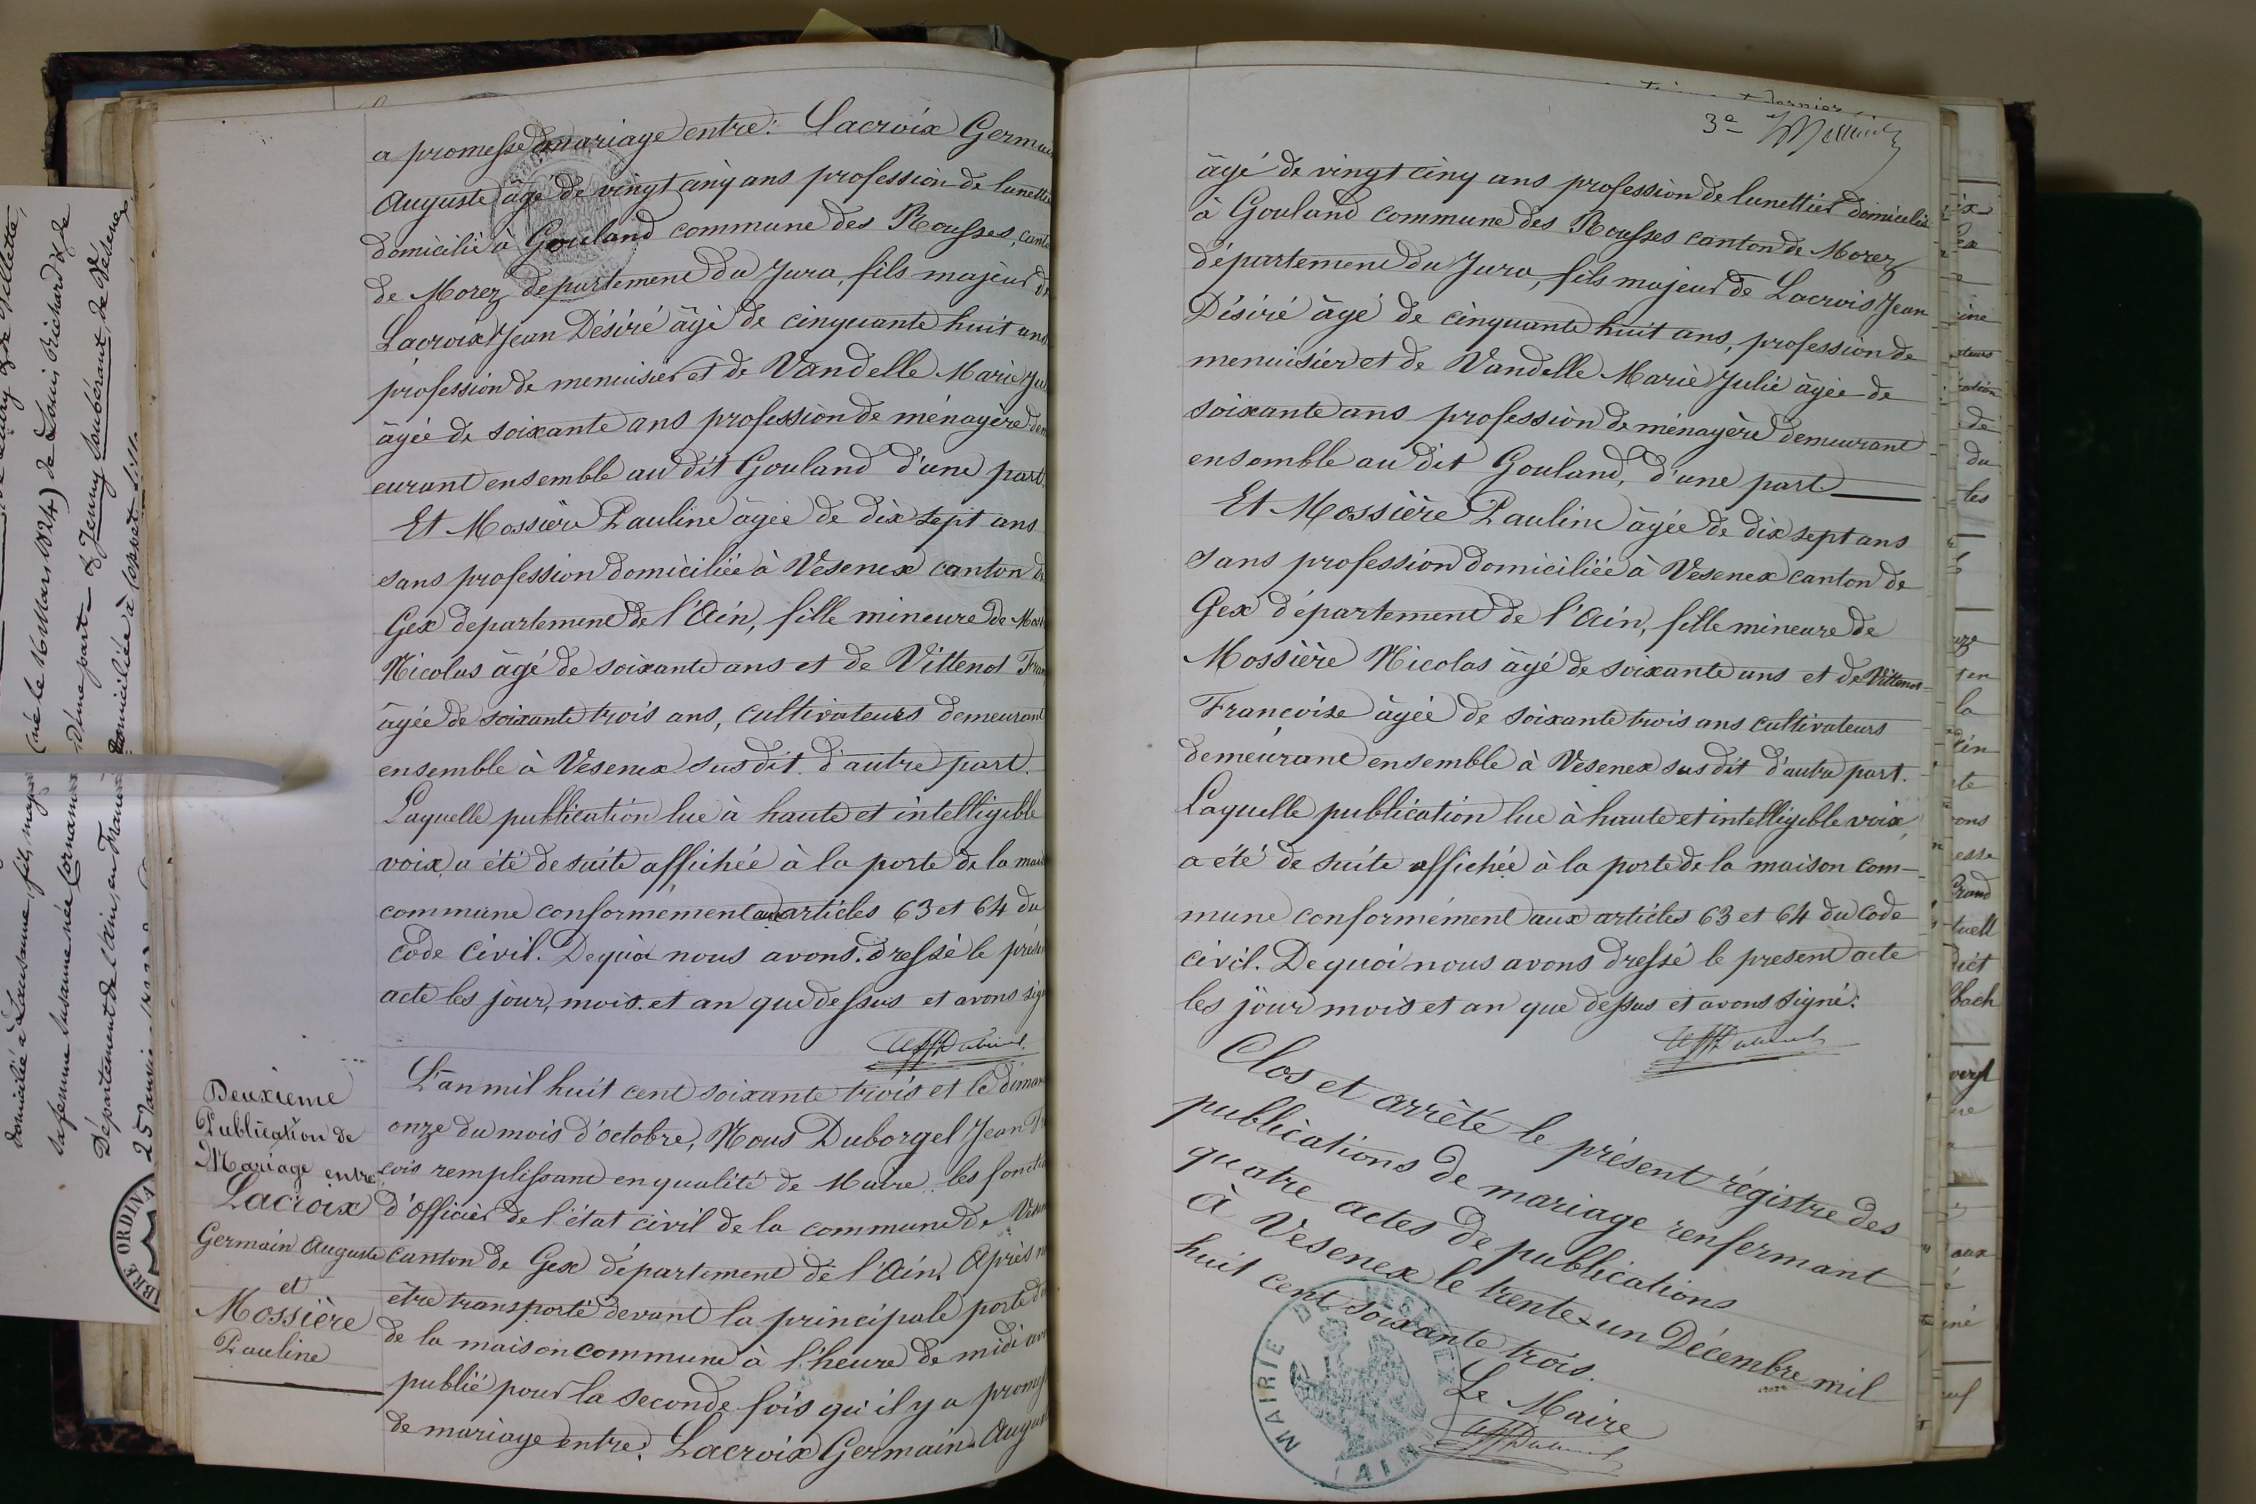 a promesse de mariage entre: Lacroix Germain
Auguste âgé de vingt cinq ans profession de lunettier
domicilié à Gouland commune des Rousses, canton
de Morez département du Jura, fils majeur de
Lacroix Jean Désiré âgé de cinquante huit ans
profession de menuisier et de Vandelle Marie Ju
âgée de soixante ans profession de ménagère dem
eurant ensemble au dit Gouland d'une part.
Et Mossière Pauline âgée de dix sept ans
sans profession domiciliée à Vesenex canton de
Gex departement de l'Ain, fille mineure de Moss
Nicolas âgé de soixante ans et de Vittenot Fran
âgée de soixante trois ans, cultivateurs demeurant
ensemble à Vesenex susdit d'autre part.
Laquelle publication lue à haute et intelligible
voix, a été de suite affichée à la porte de la mai
commune conformément aux articles 63 et 64 du
code civil. De quoi nous avons dressé le prése
acte les jour, mois et an que dessus et avons sig
Deuxième
Publication de
Mariage entre
Lacroix
Germain Auguste
et
Mossière
Pauline
L'an mil huit cent soixante trois et le diman
onze du mois d'octobre, Nous Duborgel Jean Fr
çois remplissant en qualité de Maire les foncti
d'officier de l'état civil de la commune de Vese
canton de Gex département de l'Ain. Après n
être transporté devant la principale porte d
de la maison commune à l'heure de midi av
publié pour la seconde fois qu'il y a prome
de mariage entre: Lacroix Germain Augus
3e
âgé de vingt cinq ans profession de lunettier domicilié
à Gouland commune des Rousses canton de Morez
département du Jura, fils majeur de Lacrois Jean
Désiré âgé de cinquante huit ans, profession de
menuisier et de Vandelle Marie Julie âgée de
soixante ans profession de ménagère demeurant
ensemble au dit Gouland, d'une part.
Et Mossière Pauline âgée de dix sept ans
sans profession domiciliée à Vesenex canton de
Gex département de l'Ain, fille mineure de
Mossière Nicolas âgé de soixante ans et de Vittenot
Françoise âgée de soixante trois ans cultivateurs
demeurant ensemble à Vesenex susdit d'autre part.
Laquelle publication lue à haute et intelligible voix,
a été de suite affichée à la porte de la maison com-
mune conformément aux articles 63 et 64 du code
civil. De quoi nous avons dressé le present acte
les jour mois et an que dessus et avons signé.
Clos et arrêté le présent régistre des
publications de mariage renfermant
quatre actes de publications
à Vesenex le trente-un Décembre mil
huit cent soixante trois.
Le Maire
MAIRIE DE VESENEX
(AIN)
domicilié à Lausanne, fils, majeur
(né le 16 Mars 1824) de Louis Richard & de
sa femme Susanne née Cornamu
D'une part & Jenny Joubérant, de Vésenex
Département de l'Ain, en France
domiciliée à